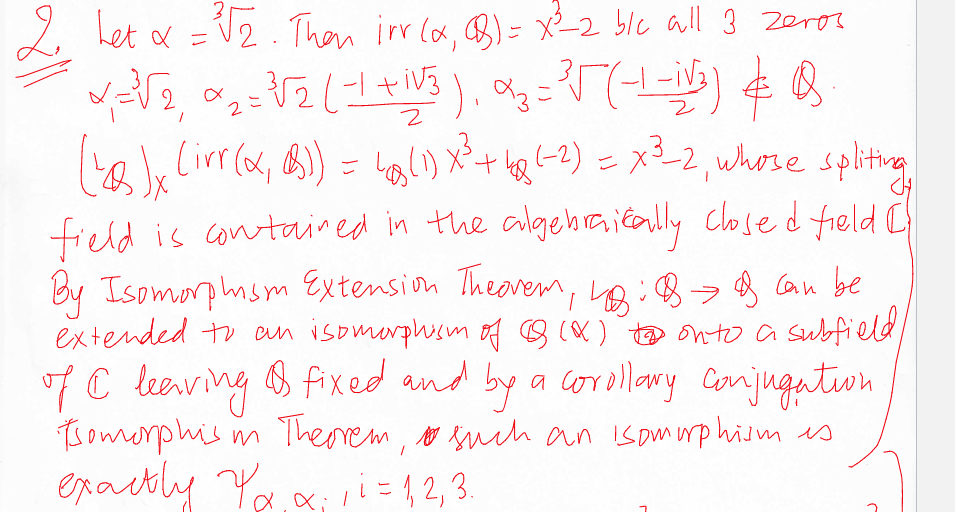 2. Let α = ∛2. Then irr(α, Q) = x³-2 b/c all 3 zeros
α₁=∛2, α₂=∛2(-1+i√3/2), α₃=∛(-1-i√3/2) ∉ Q.
(ι_Q)ₓ(irr(α, Q)) = ι_Q(1)x³+ι_Q(-2) = x³-2, whose spliting
field is contained in the algebraically closed field C
By Isomorphism Extension Theorem, ι_Q: Q → Q can be
extended to an isomorphism of Q(α) onto a subfield
of C leaving Q fixed and by a corollary Conjugation
Isomorphism Theorem, such an isomorphism is
exactly Ψ_α,αᵢ, i = 1, 2, 3.